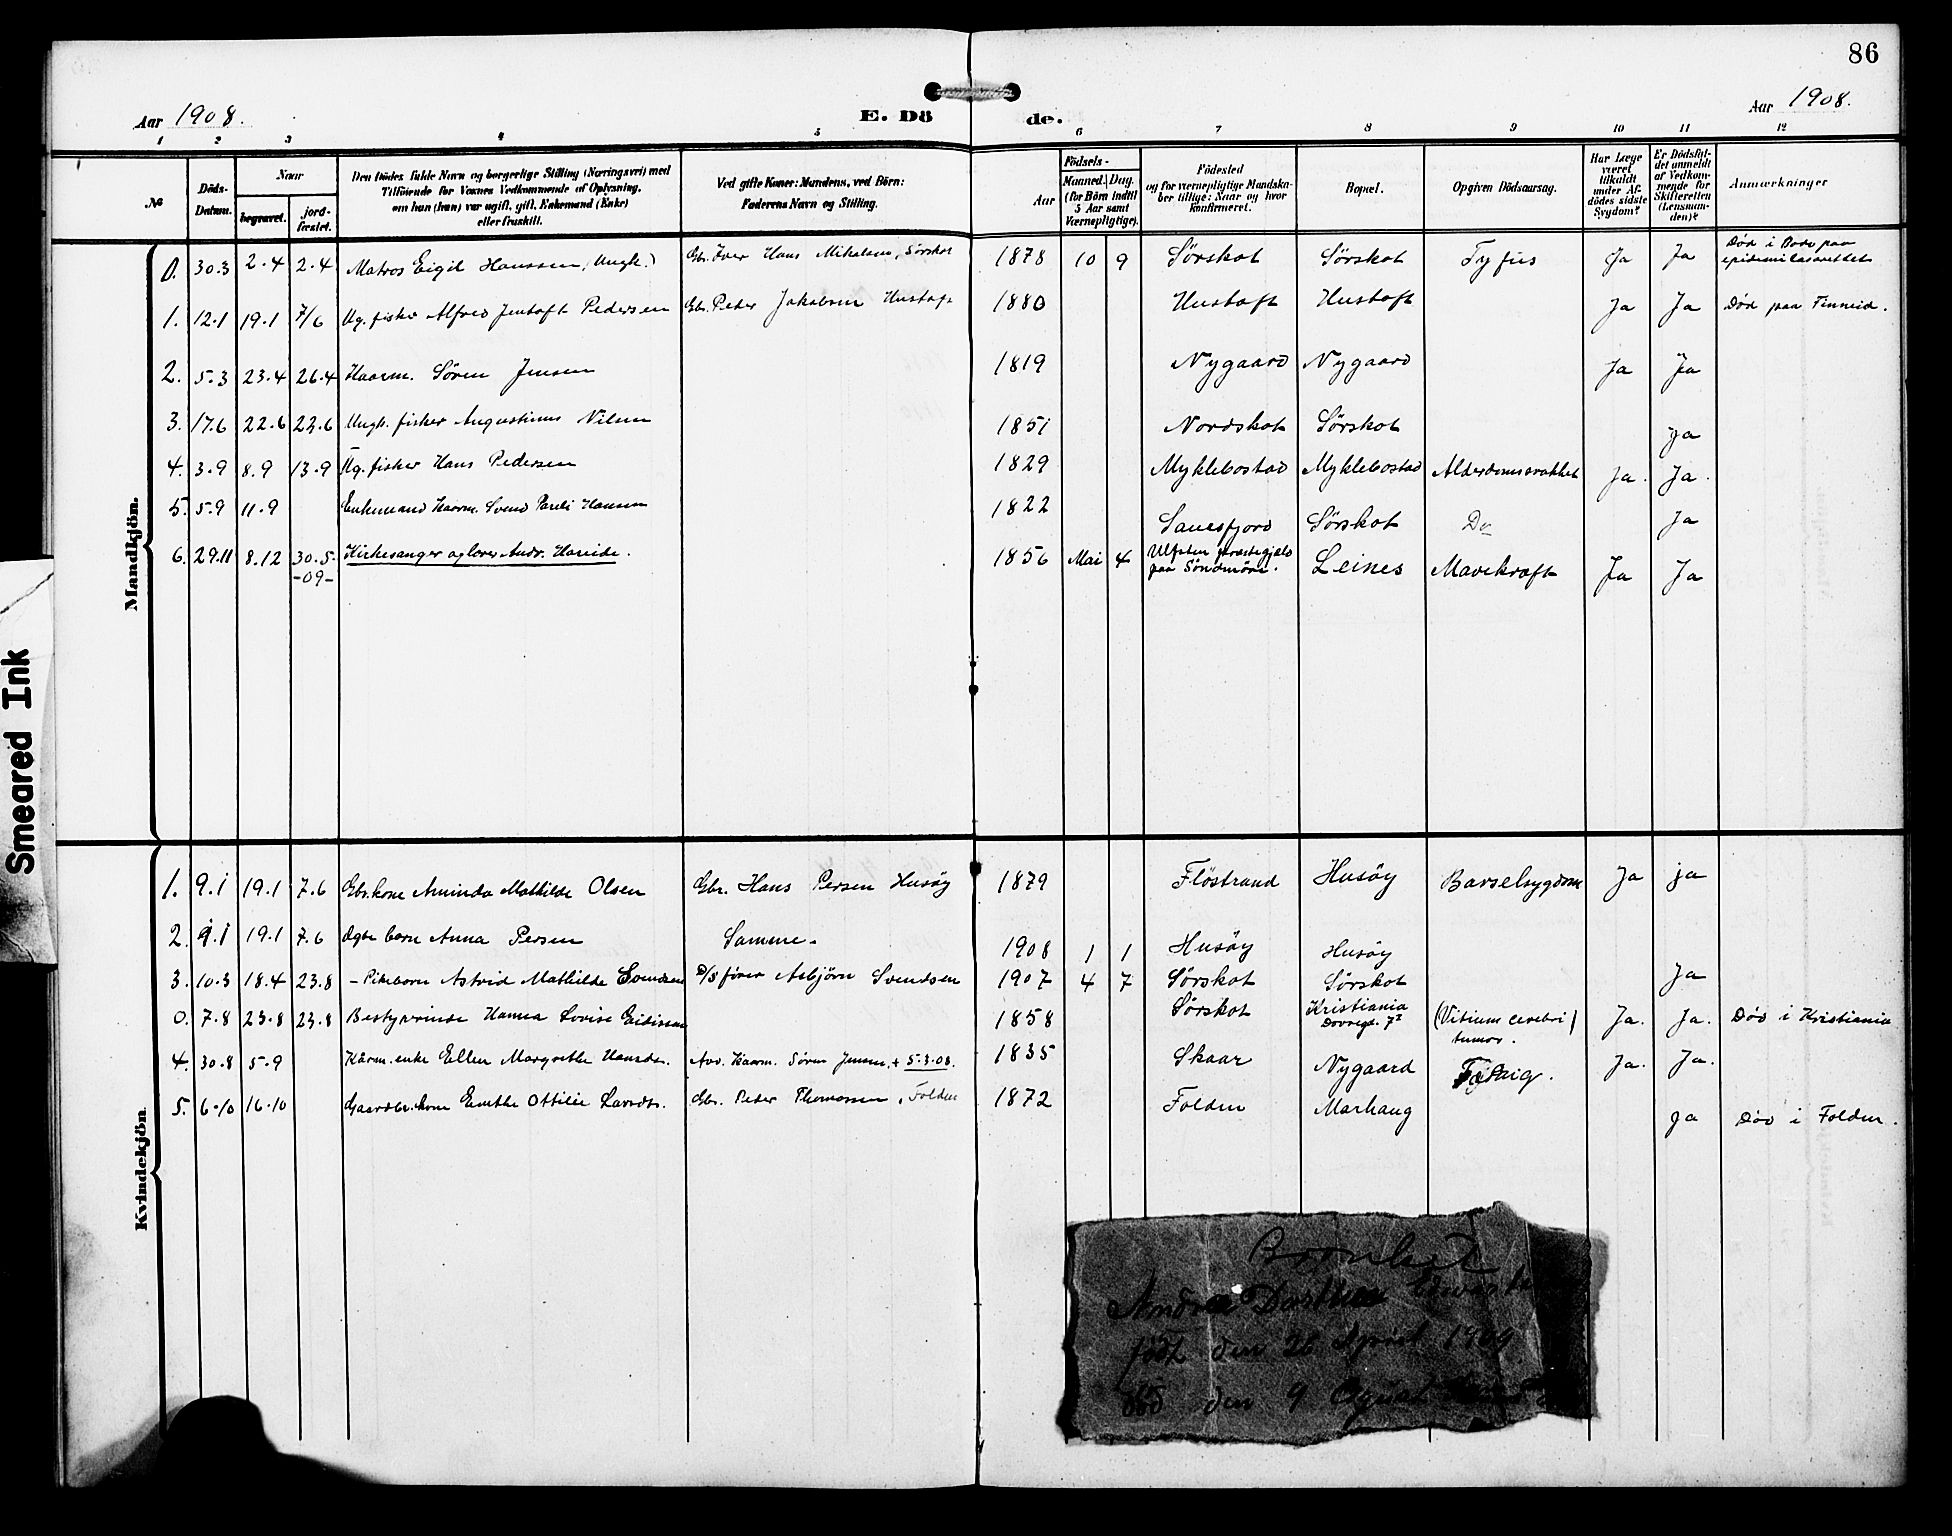 86
Aar 1908.
E. Dö de.
Aar 1908.
1 2 3 4 5 6 7 8 9 10 11 12
№
Döds-
Datum.
Naar
begravet.
jord-
fæstet.
Den Dödes fulde Navn og borgerlige Stilling (Næringsvei) med
Tilföiende for Voxnes Vedkommende af Oplysning,
om han (hun) var ugift, gift, Enkemand (Enke)
eller fraskilt.
Ved gifte Koner: Mandens, ved Börn:
Faderens Navn og Stilling.
Födsels-
Aar
Maaned. Dag.
(for Börn indtil
5 Aar samt
Værnepligtige).
Födested
og for værnepligtige Mandska-
ber tillige: Naar og hvor
konfirmeret.
Bopæl.
Opgiven Dödsaarsag.
Har Læge
været
tilkaldt
under Af-
dödes sidste
Sygdom?
Er Dödsfal-
det anmeldt
af Vedkom-
mende for
Skifteretten
(Lensman-
den)?
Anmærkninger
Mandkjön.
0. 30.3 2.4 2.4 Matros Eigil Hanssen, (Ungk.) Gbr. Iver Hans Mikalsen, Sørskot 1878 10 9 Sørskot Sørskot Tyfus Ja Ja Død i Bodø paa
epidemilasarettet
1. 12.1 19.1 7/6 Ug. fisker Alfred Jentoft Pedersen Gbr. Peter Jakobsen Hustoft 1880 Hustoft Hustoft Ja Ja Død paa Finneid.
2. 5.3 23.4 26.4 Kaarm. Søren Jensen 1819 Nygaard Nygaard Ja Ja
3. 17.6 22.6 22.6 Ungk. fisker Augustinus Nilsen 1851 Nordskot Sørskot Ja
4. 3.9 8.9 13.9 Ug. fisker Hans Pedersen 1829 Myklebostad Myklebostad Alderdomssvakhet Ja. Ja.
5. 5.9 11.9 Enkemand Kaarm. Svend Pauli Hansen 1822 Sanesfjord Sørskot Do Ja
6. 29.11 8.12 30.5
-09- Kirkesanger og lærer Andr. Hareide. 1856 Mai 4 Ulfsten præstegjæld
paa Søndmøre. Leines Mavekræft Ja Ja
Kvindekjön.
1. 9.1 19.1 7.6 Gbr. kone Aminda Mathilde Olsen Gbr. Hans Persen Husøy 1879 Fløstrand Husøy Barselsygdom Ja ja
2. 9.1 19.1 7.6 Ægte barn Anna Persen Samme. 1908 1 1 Husøy Husøy
3. 10.3 18.4 23.8 - Pikebarn Astrid Mathilde Svendsen D/S fører Asbjørn Svendsen 1907 4 7 Sørskot Sørskot Ja
0. 7.8 23.8 23.8 Bestyrerinde Hanna Lovise Eidissen 1858 Sørskot Kristiania
Dovregt. 7² (Vitium cerebri)
tumor. Ja. Ja. Død i Kristiania
4. 30.8 5.9 Kårm. enke Ellen Margrethe Hansdr. Avd. Kaarm. Søren Jensen, + 5.3.08. 1835 Skaar Nygaard Ja. Ja.
5. 6-10 16-10 Gaardbr. kone Emthe Ottilie Larsdtr. Gbr. Peter Thomassen, Folden 1872 Folden Marhaug ja Død i Folden.
Bronkit
Andrea Dorthea
født den 26 April 1909
død den 9
Smeared Ink